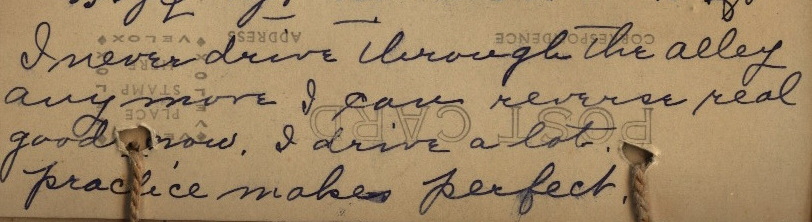 I never drive through the alley
any more I can reverse real
good now. I drive a lot.
practice makes perfect.
POST CARD
CORRESPONDENCE
ADDRESS
PLACE
STAMP
HERE
VELOX